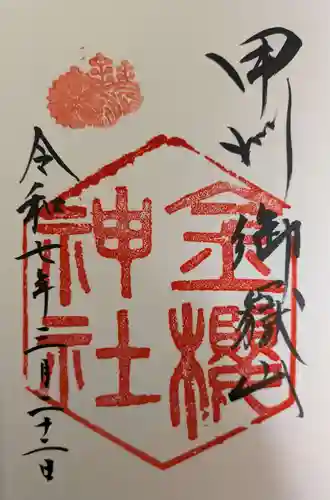 甲州御嶽山
金櫻神社
令和七年二月二十二日